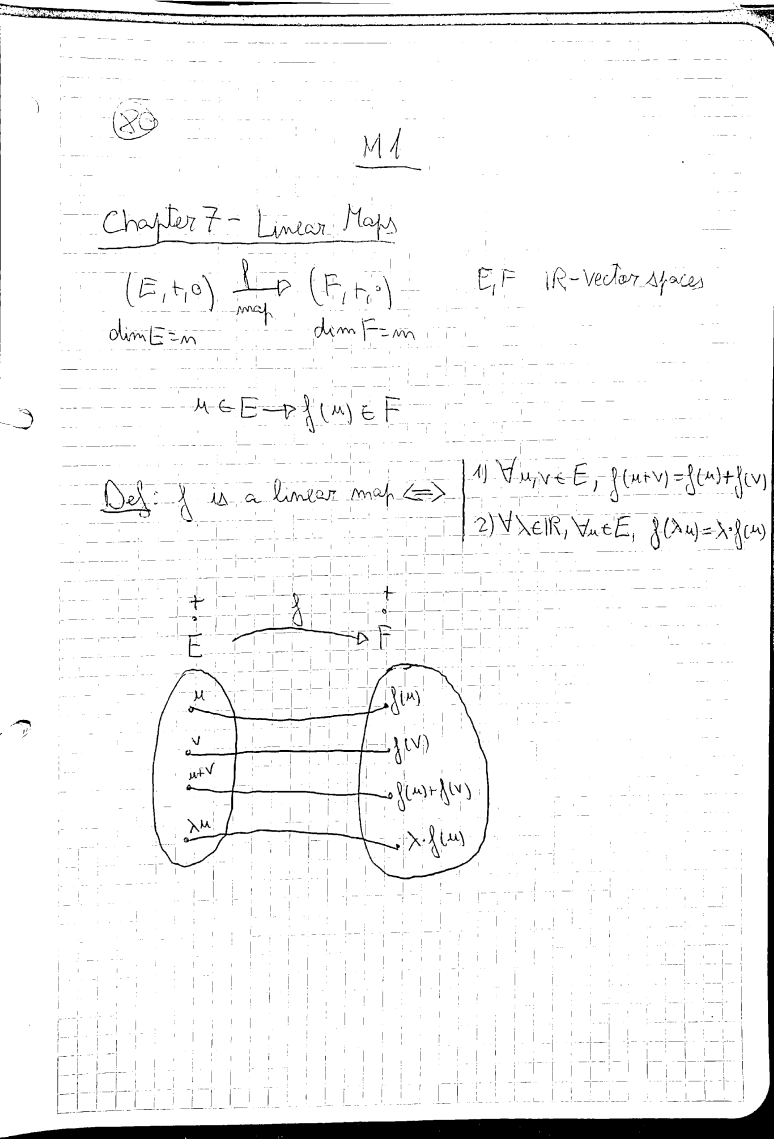 80
M1
Chapter 7 - Linear Maps
(E, +, ∘) f→ map (F, +, ∘) E, F ℝ-vector spaces
dim E = n dim F = m
u ∈ E → f(u) ∈ F
Def: f is a linear map ⟺ | 1) ∀u, v ∈ E, f(u+v) = f(u) + f(v)
2) ∀λ ∈ ℝ, ∀u ∈ E, f(λu) = λ·f(u)
+ f +
· ·
E → F
u f(u)
v f(v)
u+v f(u)+f(v)
λu λ·f(u)